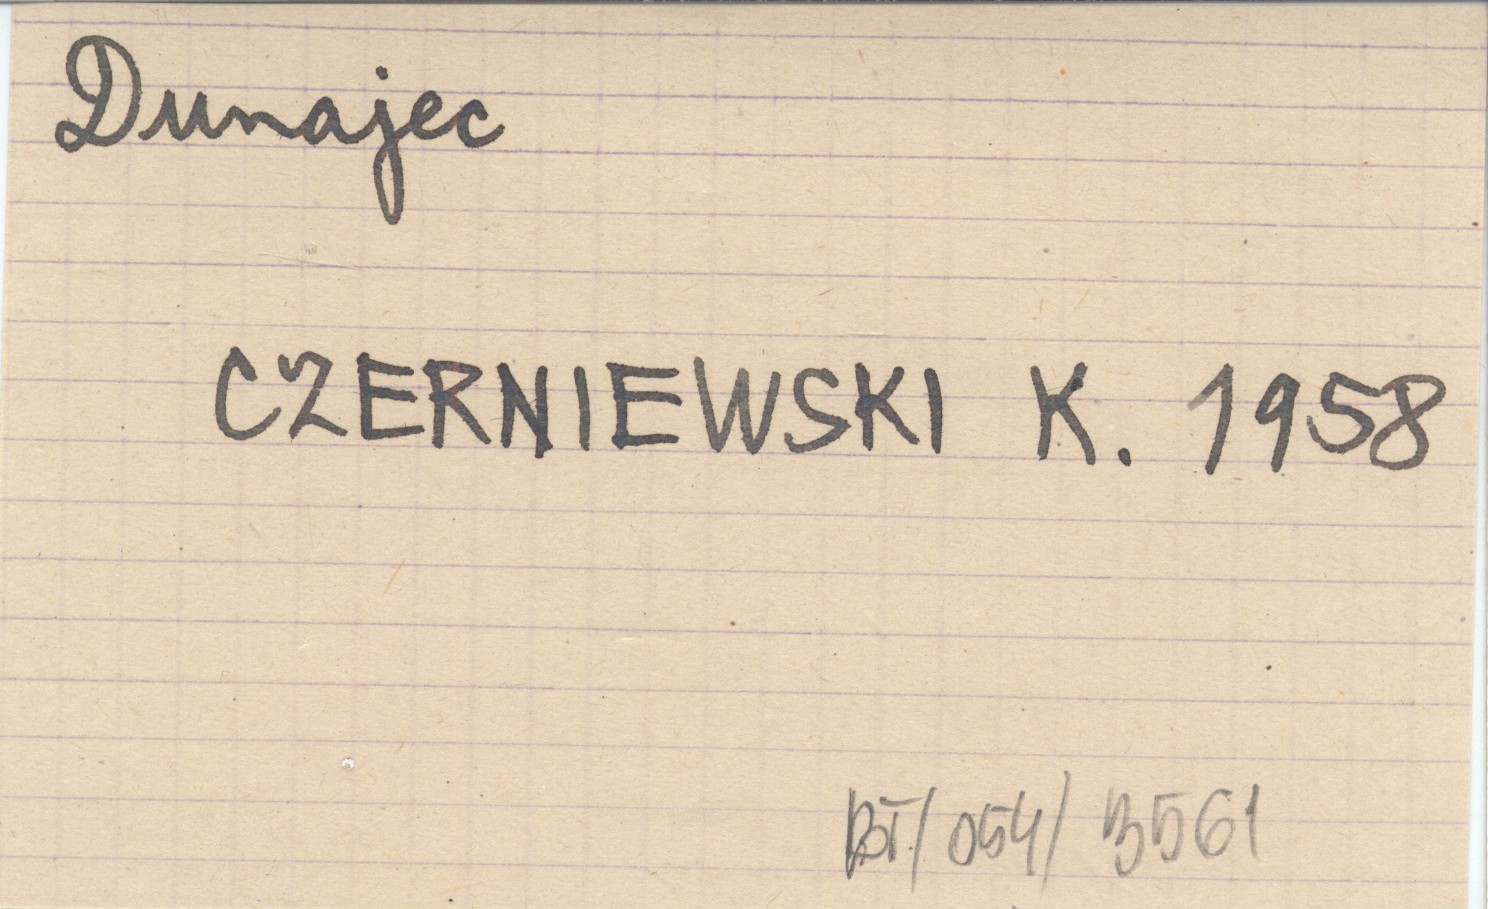 Dunajec
CZERNIEWSKI K. 1958
BOT/054/3561